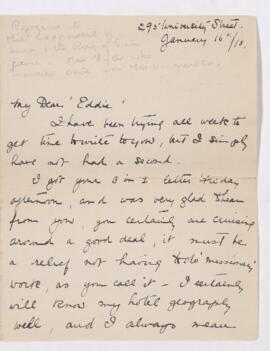 295 University Street.
January 16th/18.
Mrs
married
My Dear 'Eddie'
I have been trying all week to
get time to write to you, but I simply
have not had a second.
I got your 3 in 1 letter Friday
afternoon, and was very glad to hear
from you, you certainly are cruising
around a good deal, it must be
a relief not having to do 'missionary'
work, as you call it - I certainly
will know my hotel geography
well, and I always mean